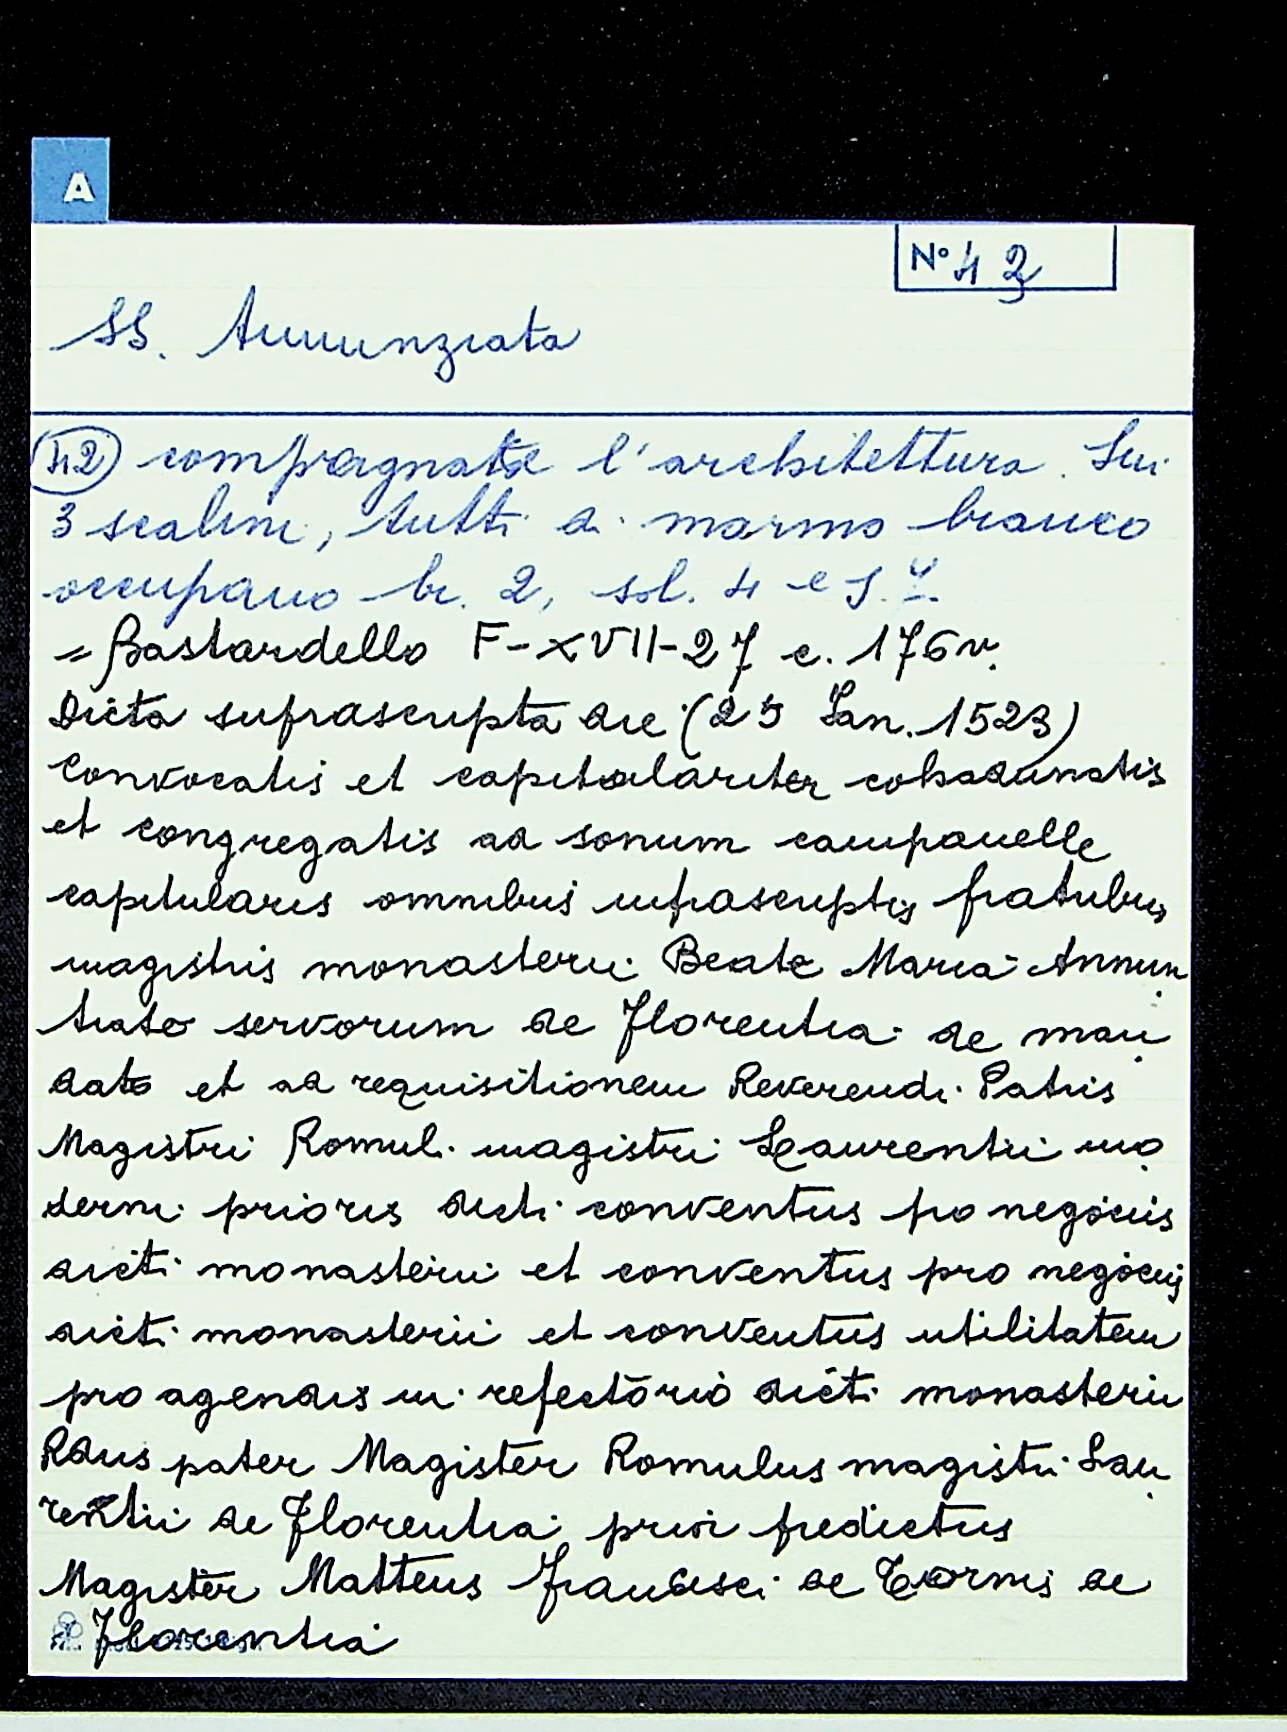 A
N° 42
SS. Annunziata
42 compagnate l'architettura. Sui
3 scalini, tutti di marmo bianco
occupano br. 2, sol. 4 e
= Bastardello F-XVII-27 c. 176v.
Dicta suprascripta die (25 Ian. 1523)
Convocatis et capitulariter cohadunatis
et congregatis ad sonum campanelle
capitularis omnibus infrascriptis fratribus
magistris monasterii Beate Maria Annun
tiate servorum de Florentia de man
dato et ad requisitionem Reverendi Patris
Magistri Romuli magistri Laurentii mo
derni prioris dicti conventus pro negociis
dicti monasterii et conventus pro negociis
dicti monasterii et conventus utilitatem
pro agendis in refectorio dicti monasterii
Rdus pater Magister Romulus magistri Lau
rentii de Florentia prior predictus
Magister Matteus Francisci de de
Florentia